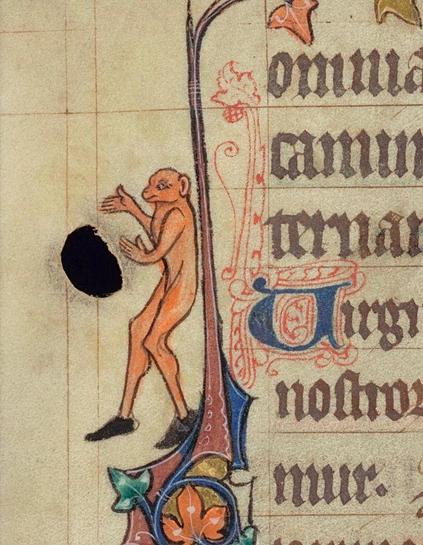 omnia
camur
ternar
Uirgi
nostror
mur.